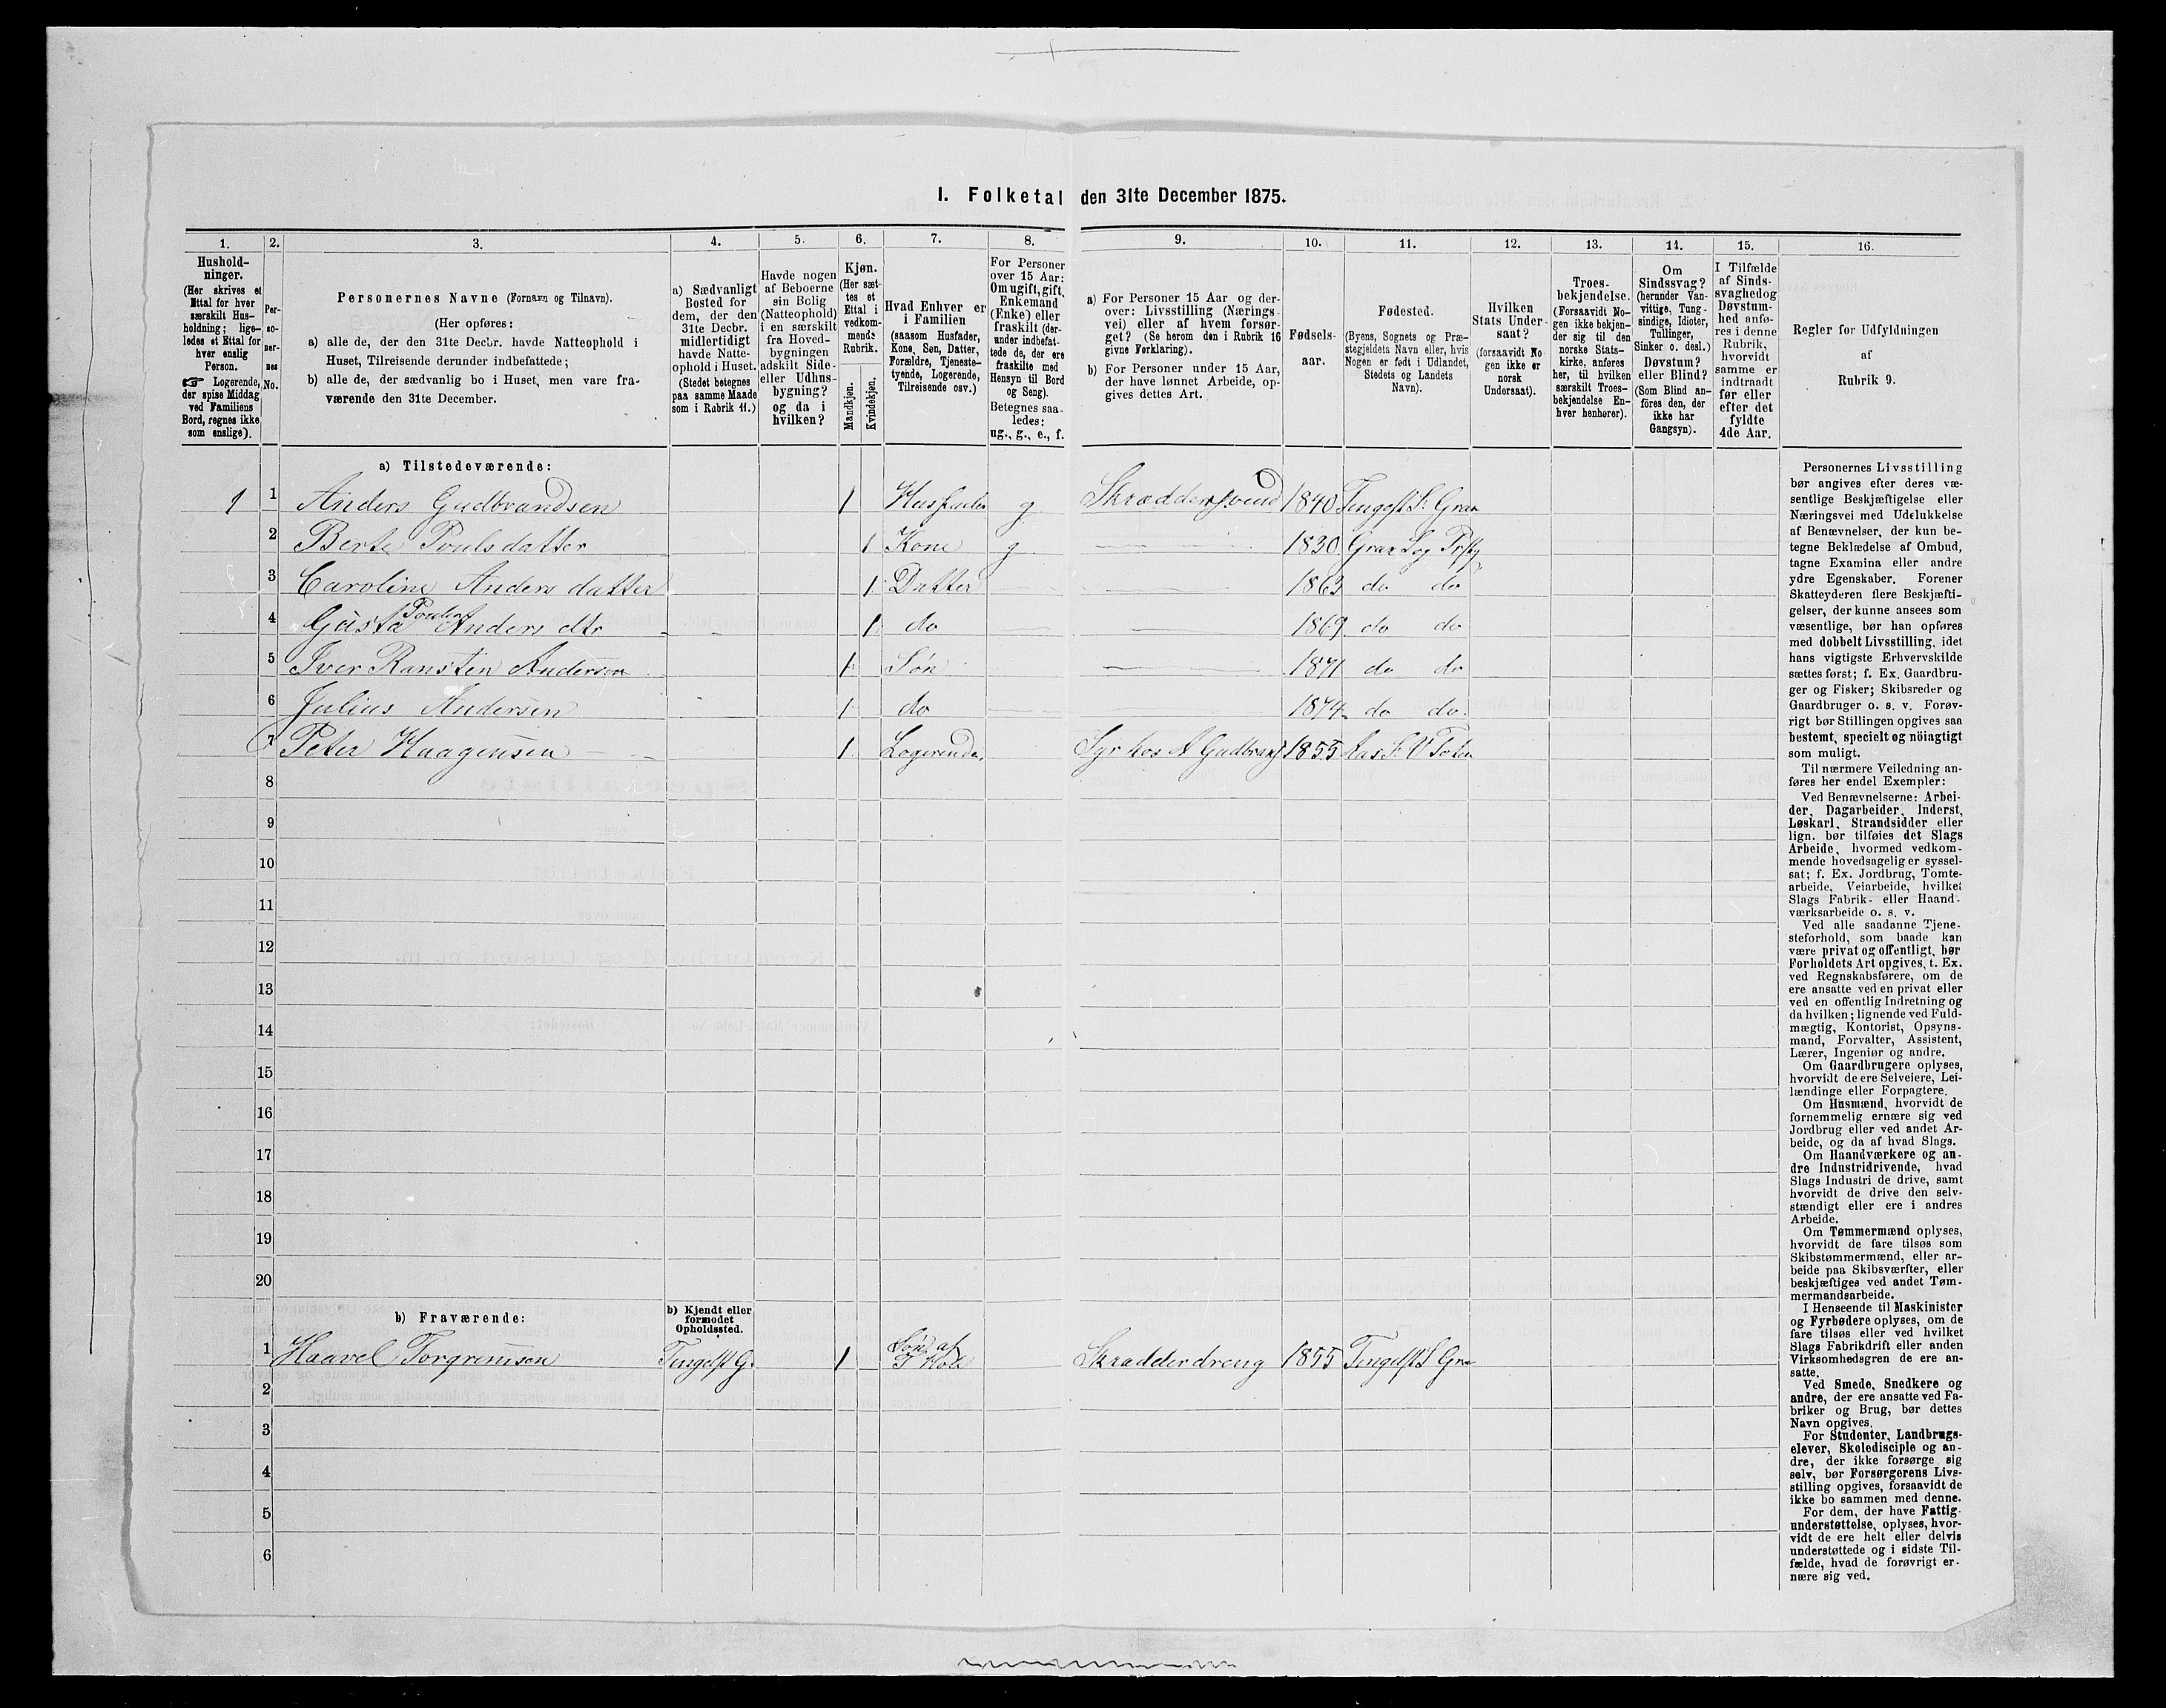 I. Folketal den 31te December 1875.
1.
2.
3.
4.
5.
6.
7.
8.
9.
10.
11.
12.
13.
14.
15.
16.
Hushold-
ninger.
(Her skrives et
Ettal for hver
særskilt Hus-
holdning; lige-
ledes et Ettal for
hver enslig
Person.
☞ Logerende,
der spise Middag
ved Familiens
Bord, regnes ikke
som enslige).
Per-
so-
ner-
nes
No.
Personernes Navne (Fornavn og Tilnavn).
(Her opføres:
a) alle de, der den 31te Decbr. havde Natteophold i
Huset, Tilreisende derunder indbefattede;
b) alle de, der sædvanlig bo i Huset, men vare fra-
værende den 31te December.
a) Sædvanligt
Bosted for
dem, der den
31te Decbr.
midlertidigt
havde Natte-
ophold i Huset.
(Stedet betegnes
paa samme Maade
som i Rubrik 11.)
Havde nogen
af Beboerne
sin Bolig
(Natteophold)
i en særskilt
fra Hoved-
bygningen
adskilt Side-
eller Udhus-
bygning?
og da i
hvilken?
Kjøn.
(Her sæt-
tes et
Ettal i
vedkom-
mende
Rubrik.
Mandkjøn.
Kvindekjøn.
Hvad Enhver er
i Familien
(saasom Husfader,
Kone, Søn, Datter,
Forældre, Tjeneste-
tyende, Logerende,
Tilreisende osv.)
For Personer
over 15 Aar:
Om ugift, gift,
Enkemand
(Enke) eller
fraskilt (der-
under indbefat-
tede de, der ere
fraskilte med
Hensyn til Bord
og Seng).
Betegnes saa-
ledes:
ug., g., e., f.
a) For Personer 15 Aar og der-
over: Livsstilling (Nærings-
vei) eller af hvem forsør-
get? (Se herom den i Rubrik 16
givne Forklaring).
b) For Personer under 15 Aar,
der have lønnet Arbeide, op-
gives dettes Art.
Fødsels-
aar.
Fødested.
(Byens, Sognets og Præ-
stegjeldets Navn eller, hvis
Nogen er født i Udlandet,
Stedets og Landets
Navn).
Hvilken
Stats Under-
saat?
(forsaavidt No-
gen ikke er
norsk
Undersaat).
Troes-
bekjendelse.
(Forsaavidt No-
gen ikke bekjen-
der sig til den
norske Stats-
kirke, anføres
her, til hvilken
særskilt Troes-
bekjendelse En-
hver henhører).
Om
Sindssvag?
(herunder Van-
vittige, Tung-
sindige, Idioter,
Tullinger,
Sinker o. desl.)
Døvstum?
eller Blind?
(Som Blind an-
føres den, der
ikke har
Gangsyn).
I Tilfælde
af Sinds-
svaghed og
Døvstum-
hed anfø-
res i denne
Rubrik,
hvorvidt
samme er
indtraadt
før eller
efter det
fyldte
4de Aar.
Regler for Udfyldningen
af
Rubrik 9.
a) Tilstedeværende:
1 1 Anders Gudbrandsen 1 Husfader g Skræddersvend 1840 Tingelst S. Gran
2 Berte Pouls datter 1 Kone g 1830 Gran S og Prstg
3 Caroline Anders datter 1 Datter 1863 do do
4 Gusta Anders dtr 1 do 1869 do do
5 Iver Ranstin Andersen 1 Søn 1871 do do
6 Julius Andersen 1 do 1874 do do
7 Peter Haagensen 1 Logerende Syr hos A Gudbrands 1855 Aas S. V Toten
8
9
10
11
12
13
14
15
16
17
18
19
20
b) Fraværende:
b) Kjendt eller
formodet
Opholdssted.
1 Haavel Torgrimsen Tingelst G. 1 Søn af Skrædderdreng 1855 Tingelst S Gra
2
3
4
5
6
Personernes Livsstilling
bør angives efter deres væ-
sentlige Beskjæftigelse eller
Næringsvei med Udelukkelse
af Benævnelser, der kun be-
tegne Beklædelse af Ombud,
tagne Examina eller andre
ydre Egenskaber. Forener
Skatteyderen flere Beskjæfti-
gelser, der kunne ansees som
væsentlige, bør han opføres
med dobbelt Livsstilling, idet
hans vigtigste Erhvervskilde
sættes først; f. Ex. Gaardbru-
ger og Fisker; Skibsreder og
Gaardbruger o. s. v. Forøv-
rigt bør Stillingen opgives saa
bestemt, specielt og nöiagtigt
som muligt.
Til nærmere Veiledning an-
føres her endel Exempler:
Ved Benævnelserne: Arbei-
der, Dagarbeider, Inderst,
Løskarl, Strandsidder eller
lign. bør tilføies det Slags
Arbeide, hvormed vedkom-
mende hovedsagelig er syssel-
sat; f. Ex. Jordbrug, Tomte-
arbeide, Veiarbeide, hvilket
Slags Fabrik- eller Haand-
værksarbeide o. s. v.
Ved alle saadanne Tjene-
steforhold, som baade kan
være privat og offentligt, bør
Forholdets Art opgives, t. Ex.
ved Regnskabsførere, om de
ere ansatte ved en privat eller
ved en offentlig Indretning og
da hvilken; lignende ved Fuld-
mægtig, Kontorist, Opsyns-
mand, Forvalter, Assistent,
Lærer, Ingeniør og andre.
Om Gaardbrugere oplyses,
hvorvidt de ere Selveiere, Lei-
lændinge eller Forpagtere.
Om Husmænd, hvorvidt de
fornemmelig ernære sig ved
Jordbrug eller ved andet Ar-
beide, og da af hvad Slags.
Om Haandværkere og an-
dre Industridrivende, hvad
Slags Industri de drive, samt
hvorvidt de drive den selv-
stændigt eller ere i andres
Arbeide.
Om Tømmermænd oplyses,
hvorvidt de fare tilsøs som
Skibstømmermænd, eller ar-
beide paa Skibsværfter, eller
beskjæftiges ved andet Tøm-
mermandsarbeide.
I Henseende til Maskinister
og Fyrbødere oplyses, om de
fare tilsøs eller ved hvilket
Slags Fabrikdrift eller anden
Virksomhedsgren de ere an-
satte.
Ved Smede, Snedkere og
andre, der ere ansatte ved Fa-
briker og Brug, bør dettes
Navn opgives.
For Studenter, Landbrugs-
elever, Skoledisciple og an-
dre, der ikke forsørge sig
selv, bør Forsørgerens Livs-
stilling opgives, forsaavidt de
ikke bo sammen med denne.
For dem, der have Fattig-
understøttelse, oplyses, hvor-
vidt de ere helt eller delvis
understøttede og i sidste Til-
fælde, hvad de forøvrigt er-
nære sig ved.